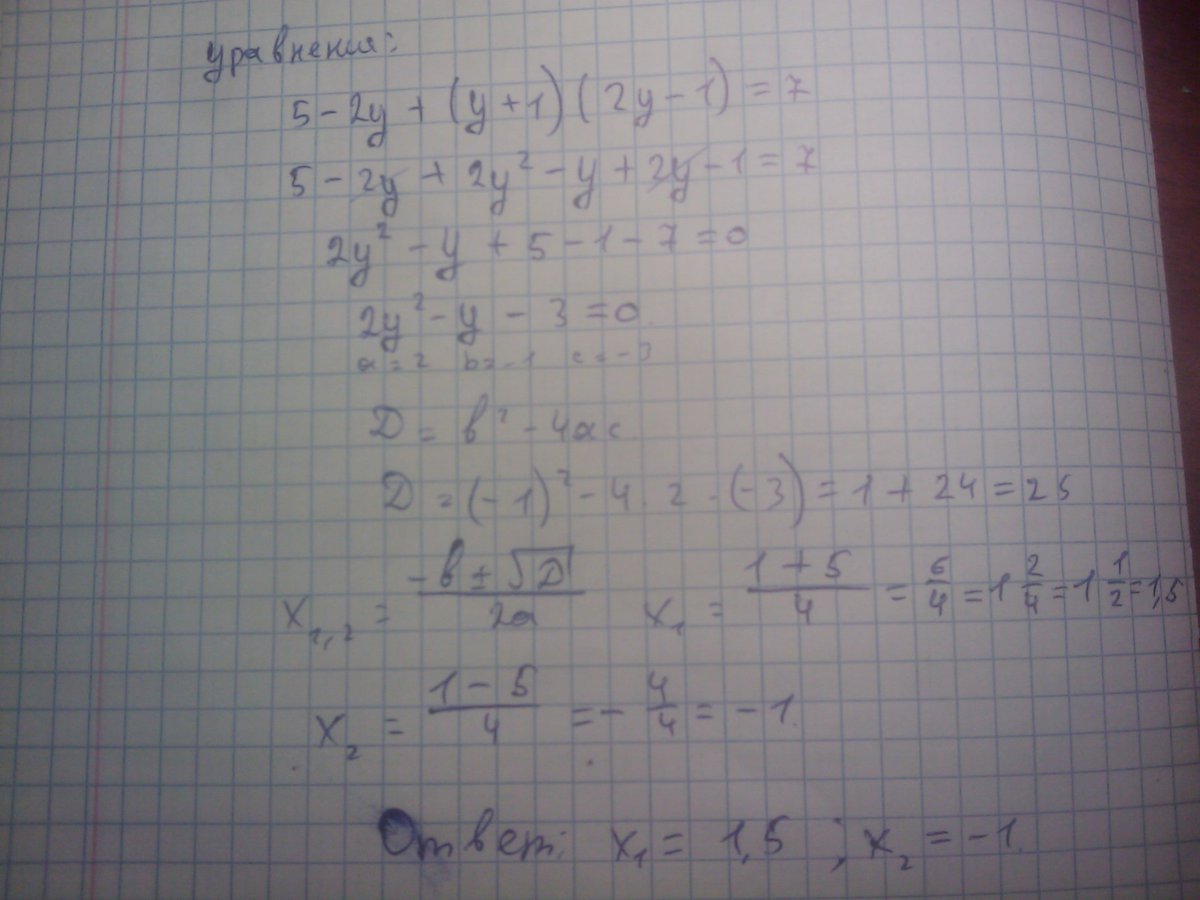 уравнения:
5 - 2y + (y + 1)(2y - 1) = 7
5 - 2y + 2y² - y + 2y - 1 = 7
2y² - y + 5 - 1 - 7 = 0
2y² - y - 3 = 0
a = 2 b = -1 c = -3
D = b² - 4ac
D = (-1)² - 4 · 2 · (-3) = 1 + 24 = 25
x₁,₂ = (-b ± √D)/2a x₁ = (1 + 5)/4 = 6/4 = 1 2/4 = 1 1/2 = 1,5
x₂ = (1 - 5)/4 = - 4/4 = -1.
Ответ: x₁ = 1,5 ; x₂ = -1.